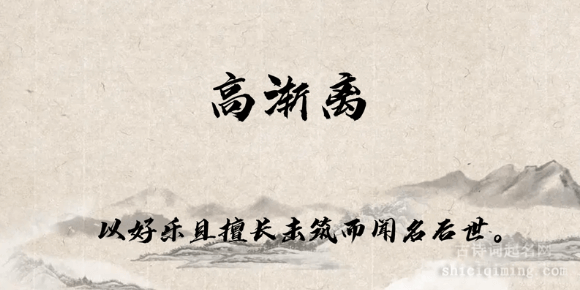 高渐离
以好乐且擅长击筑而闻名后世。
古诗词起名网
shiciqiming.com